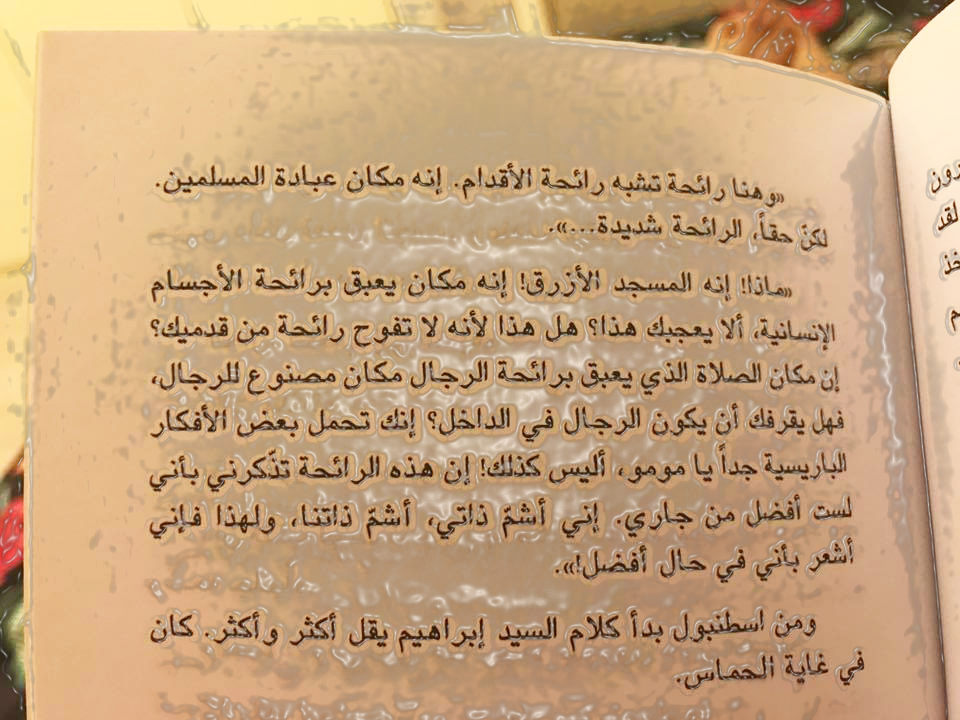 «وهنا رائحة تشبه رائحة الأقدام. إنه مكان عبادة المسلمين.
لكنّ حقاً، الرائحة شديدة...».
«ماذا! إنه المسجد الأزرق! إنه مكان يعبق برائحة الأجسام
الإنسانية، ألا يعجبك هذا؟ هل هذا لأنه لا تفوح رائحة من قدميك؟
إن مكان الصلاة الذي يعبق برائحة الرجال مكان مصنوع للرجال،
فهل يقرفك أن يكون الرجال في الداخل؟ إنك تحمل بعض الأفكار
الباريسية جداً يا مومو، أليس كذلك! إن هذه الرائحة تذّكرني بأني
لست أفضل من جاري. إني أشمّ ذاتي، أشمّ ذاتنا، ولهذا فإني
أشعر بأني في حال أفضل!».
ومن اسطنبول بدأ كلام السيد إبراهيم يقل أكثر وأكثر. كان
في غاية الحماس.
لقد